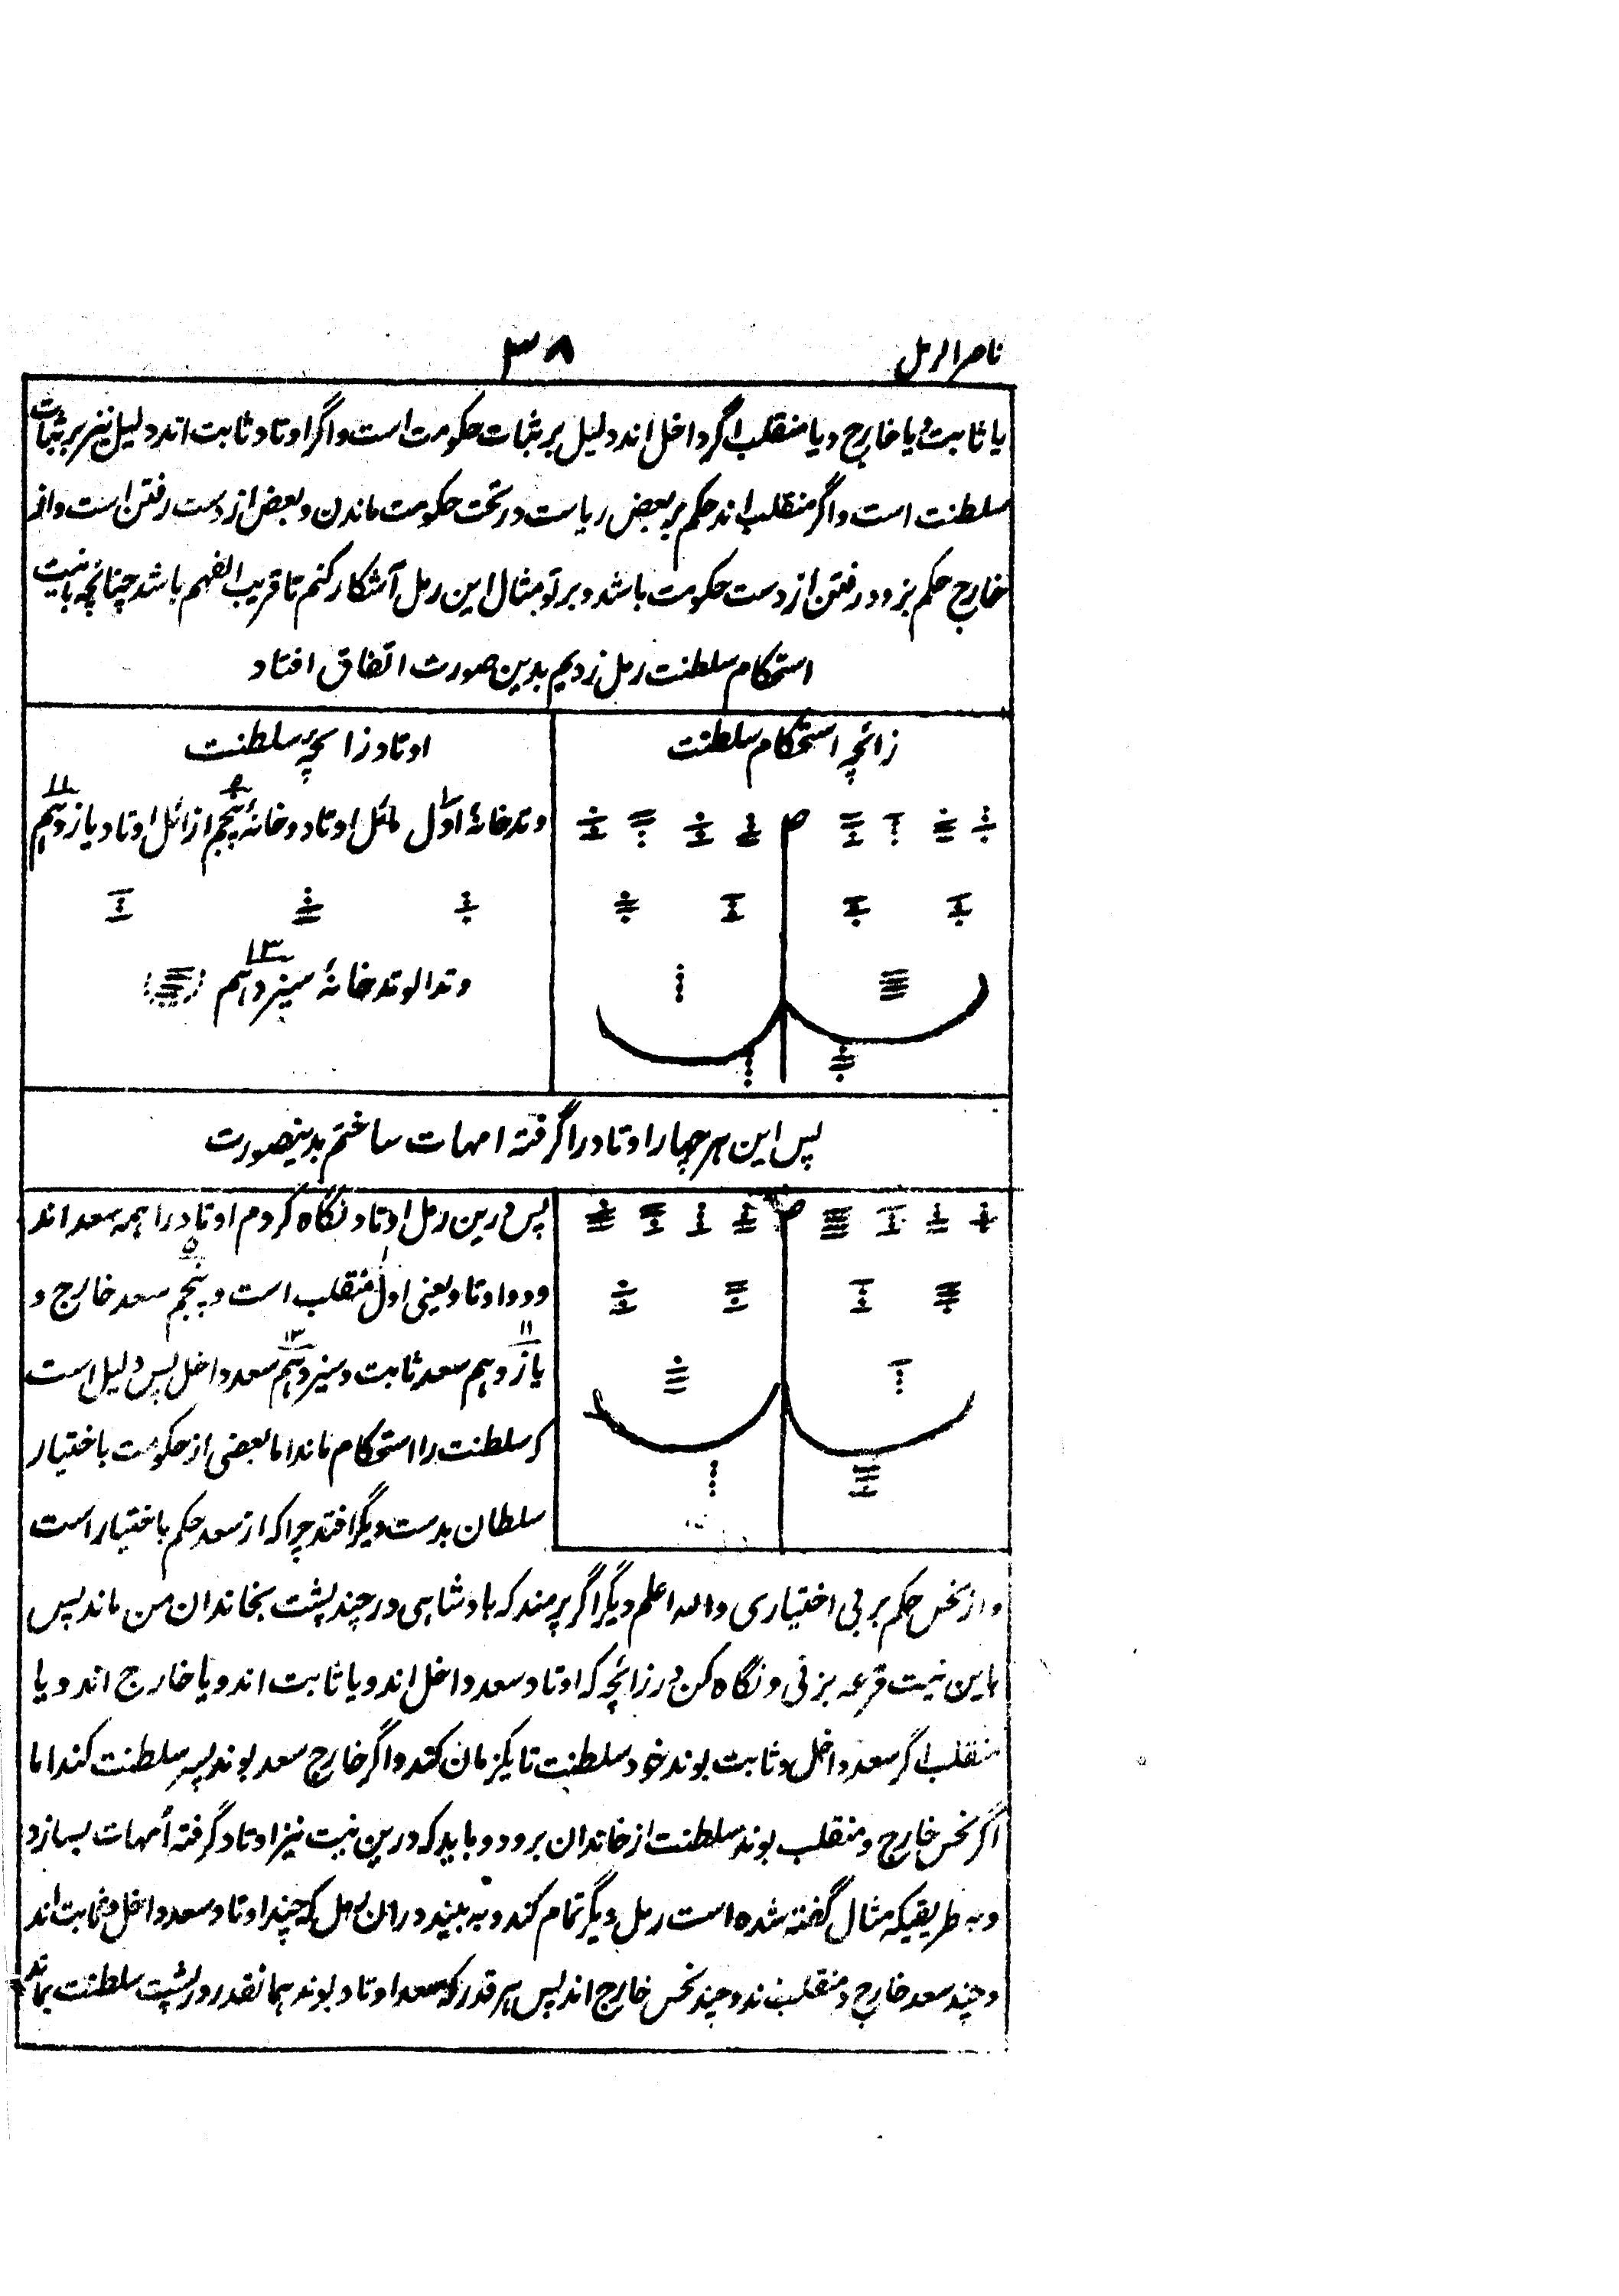 ناصر الرمل
۳۸
یا ثابت و یا خارج و یا منقلب اگر داخل اند دلیل بر ثبات حکومت است و اگر اوتاد ثابت اند دلیل نیز بر ثبات
سلطنت است و اگر منقلب اند حکم بر بعض ریاست در تحت حکومت ماندن و بعض از دست رفتن است و از
خارج حکم بزود رفتن از دست حکومت باشد و بر تو بمثال این رمل آشکار کنم تا قریب الفهم باشد چنانچه بانیت
استحکام سلطنت رمل زدیم بدین صورت اتفاق افتاد
زائچه استحکام سلطنت
اوتاد زائچه سلطنت
وتد خانهٔ اول مائل اوتاد و خانهٔ پنجم ازائل اوتاد یازدهم
۱۱
وتد الوتد خانهٔ سیزدهم
۱۳
پس این هر چهار اوتاد را گرفته امهات ساختم بدینصورت
پس درین رمل اوتاد نگاه کردم اوتاد را همه سعد اند
ودو اوتاد یعنی اول منقلب است و پنجم سعد خارج و
۱ ۵
یازدهم سعد ثابت و سیزدهم سعد داخل پس دلیل است
۱۱ ۱۳
که سلطنت را استحکام ماند اما بعضی از حکومت باختیار
سلطان بدست دیگر افتد چرا که از سعد حکم باختیار است
و از نحس حکم بر بی اختیاری والله اعلم دیگر اگر پرسند که بادشاهی در چند پشت بخاندان من ماند پس
باین نیت قرعه بزنی و نگاه کن در زائچه که اوتاد سعد داخل اند و یا ثابت اند و یا خارج اند و یا
منقلب اگر سعد داخل و ثابت بوند خود سلطنت تا یکزمان کند و اگر خارج سعد بوند پسر سلطنت کند اما
اگر نحس خارج و منقلب بوند سلطنت از خاندان برود و باید که درین نیت نیز اوتاد گرفته اُمهات بسازد
و به طریقیکه مثال گفته شده است رمل دیگر تمام کند و به بیند دران رمل که چند اوتاد سعد داخل و ثابت اند
و چند سعد خارج و منقلب ند و چند نحس خارج اند پس هر قدر که سعد اوتاد بوند همانقدر در پشت سلطنت بماند